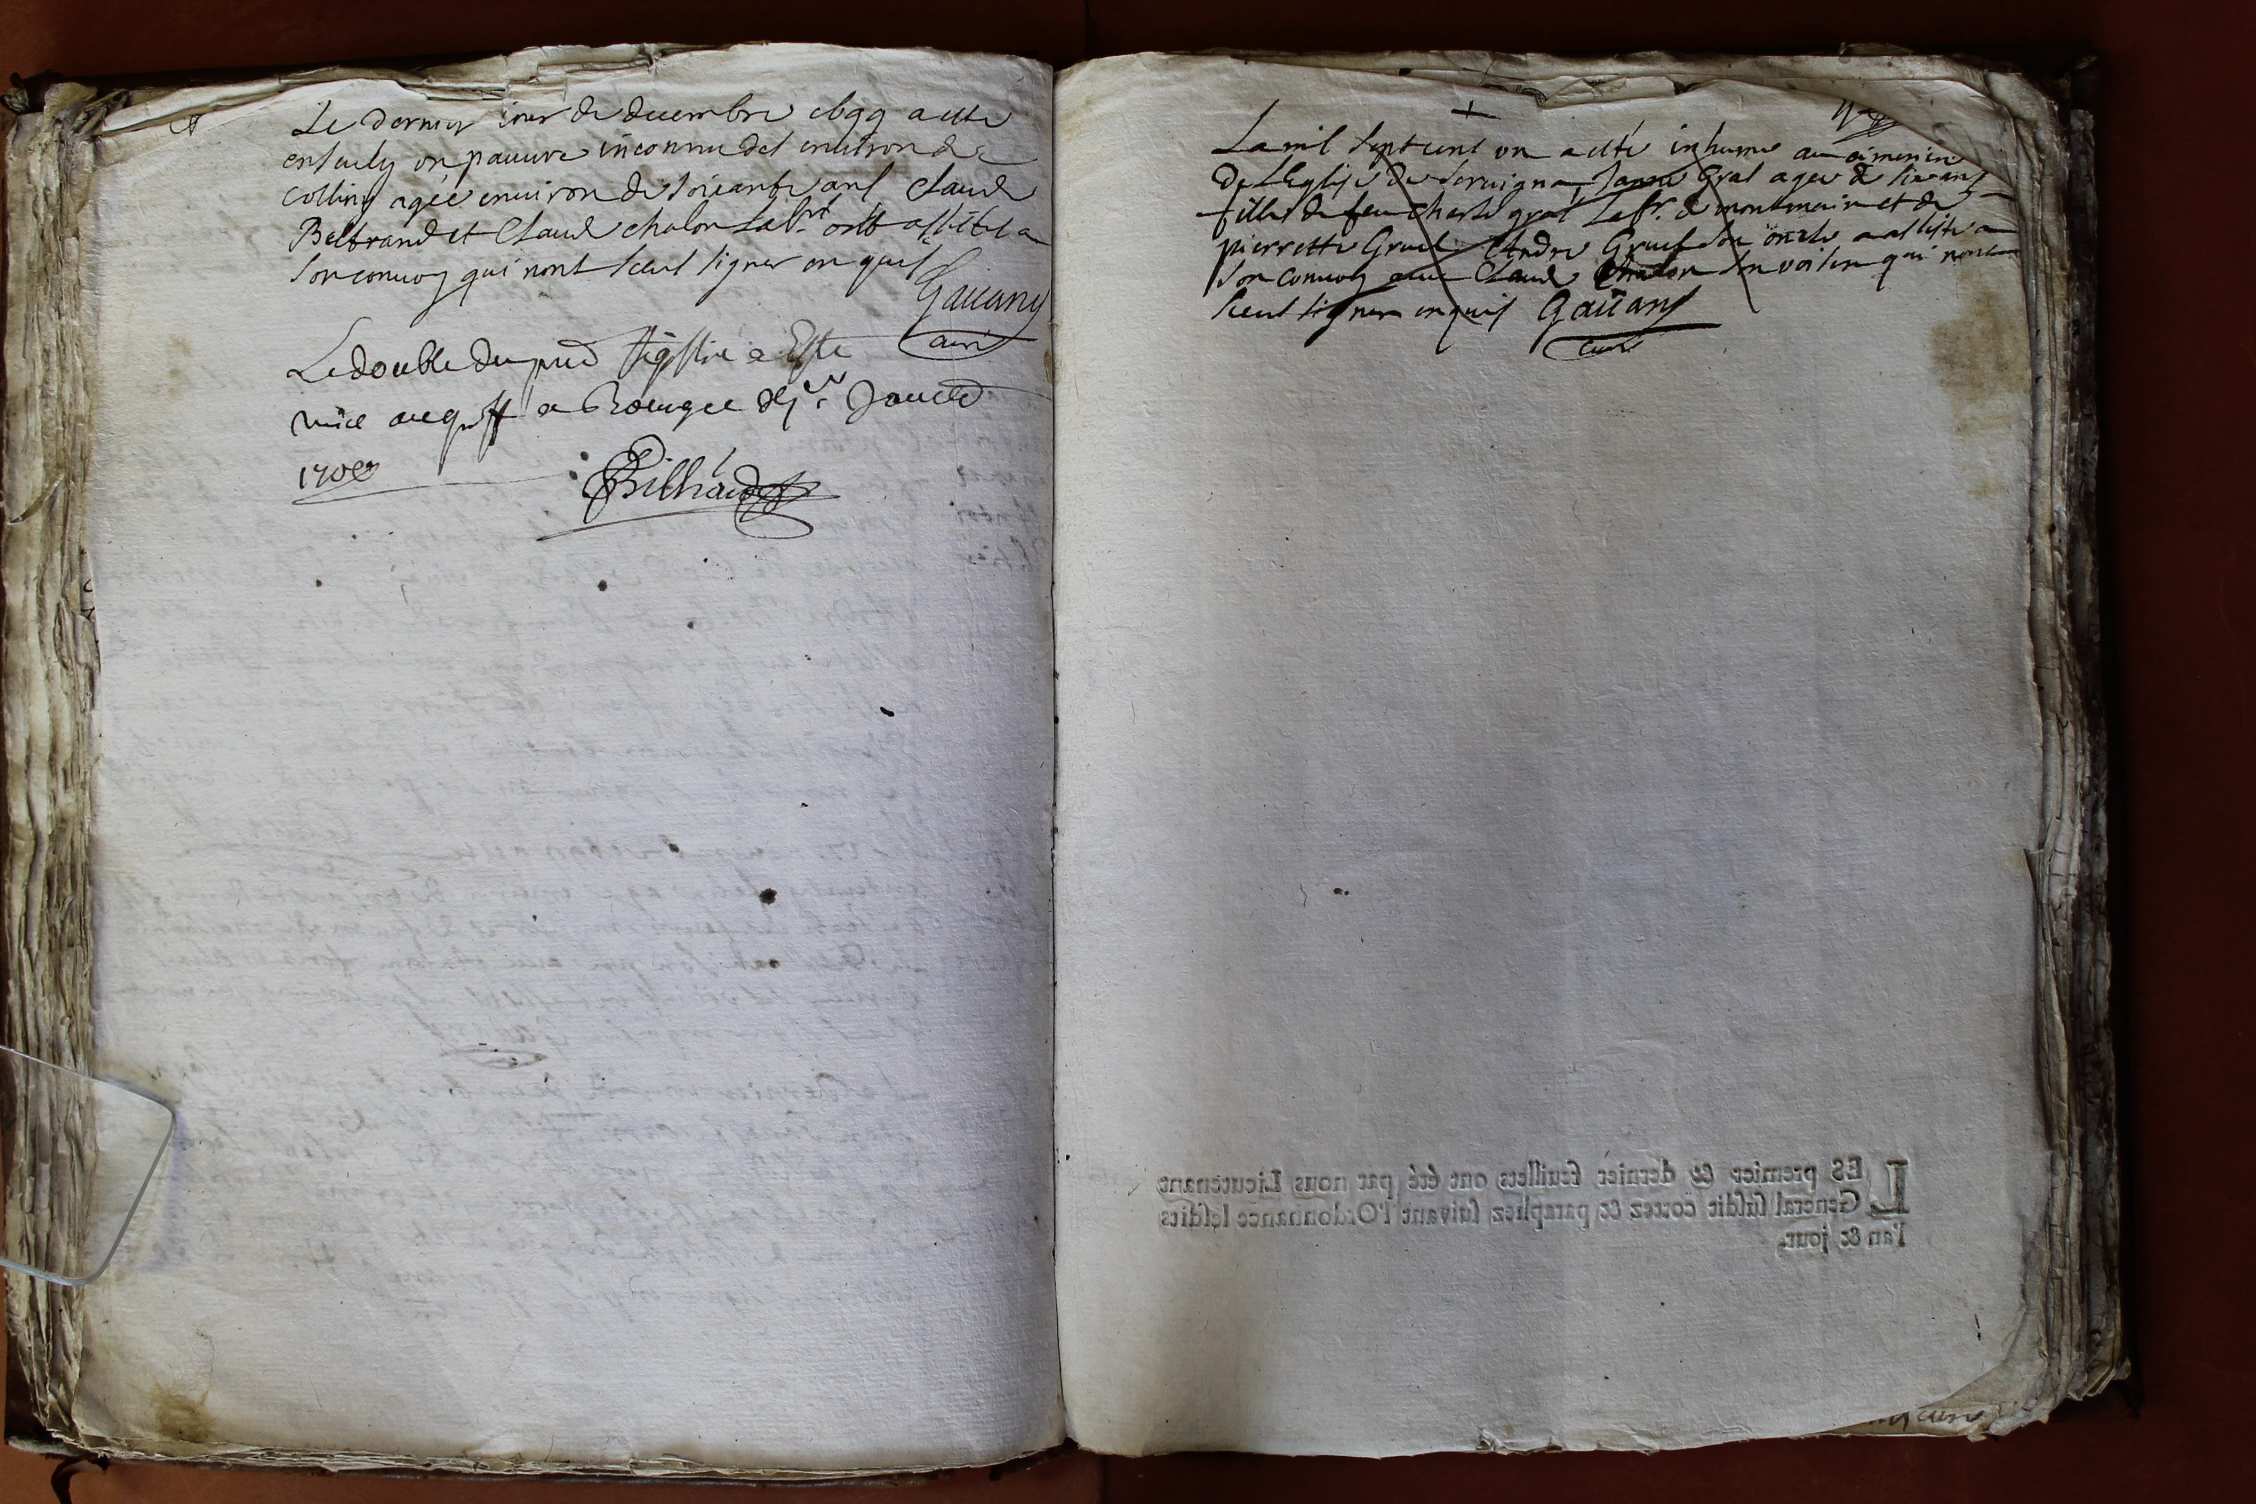 Le dernier iour de decembre
enseuely un pauure inconnu des enuiron de
Colliny agée enuiron de soixante ans Claude
Beltrand et Claude chalon Labr. ont assistes a
son conuoy qui nont sceut signer en quis
Gauany
curé
Le double du pnt Registre a Este
mise au greff a Bourg ce
Billiard
La mil sept cent un a esté inhumé au cimetiere
de l'Eglise de seruigna Gral agee de six ans
fille de feu charle gral Labr. de montmain et de
pierrette Gruel Andre Gruel son oncle a assisté a
son conuoy auec Claude Chalon son voisin qui nont
sceut signer enquis Gaüany
curé
LES premier & dernier feuillets ont été par nous Lieutenant
General susdit cottez & paraphez suivant l'Ordonnance lesdits
l'an & jour.